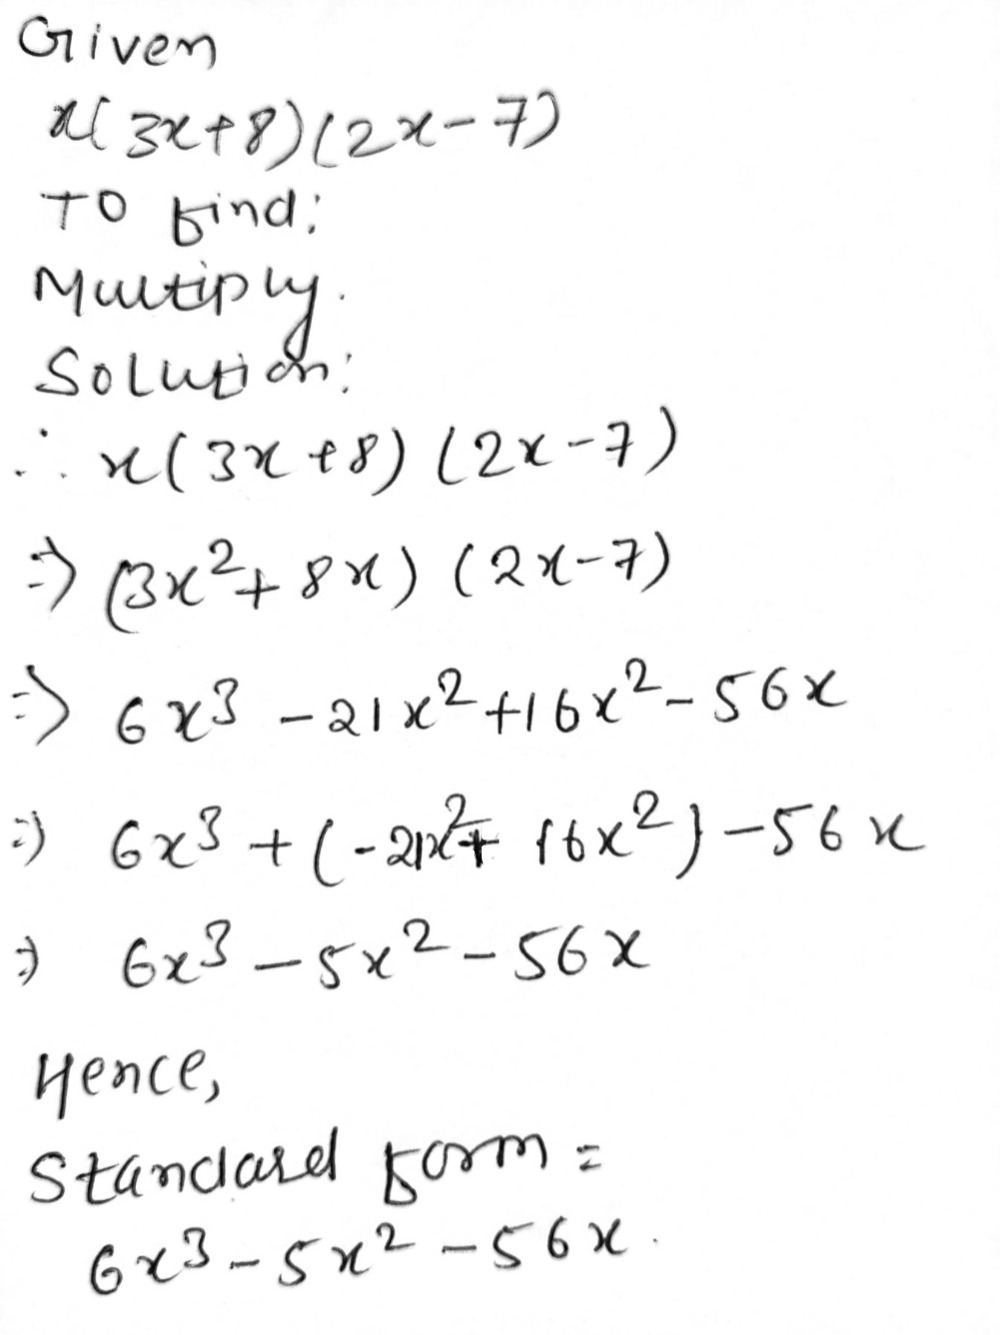 Given
x(3x+8)(2x-7)
To find:
Multiply.
Solution:
∴ x(3x+8)(2x-7)
⇒ (3x²+8x)(2x-7)
⇒ 6x³-21x²+16x²-56x
⇒ 6x³+(-21x²+16x²)-56x
⇒ 6x³-5x²-56x
Hence,
Standard form=
6x³-5x²-56x.